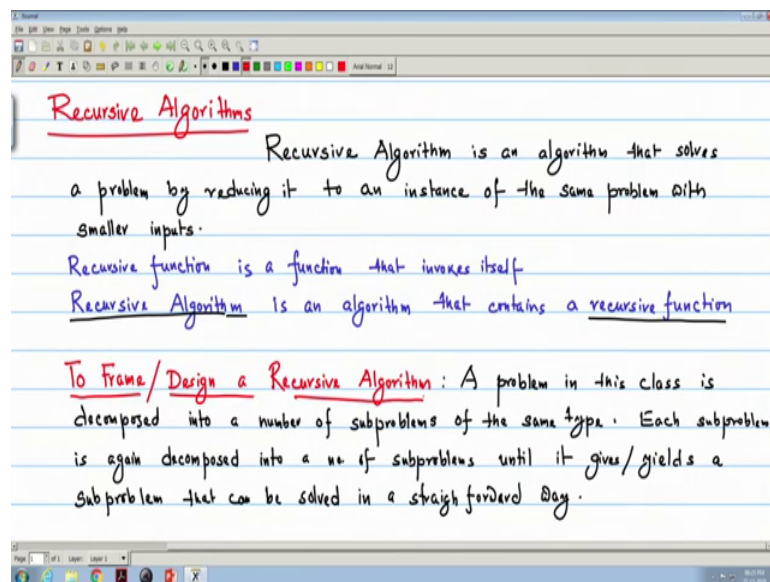 Normal
File Edit View Page Tools Options Help
Arial Normal 12
Recursive Algorithms
Recursive Algorithm is an algorithm that solves
a problem by reducing it to an instance of the same problem with
smaller inputs.
Recursive function is a function that invokes itself
Recursive Algorithm is an algorithm that contains a recursive function
To Frame/Design a Recursive Algorithm : A problem in this class is
decomposed into a number of subproblems of the same type. Each subproblem
is again decomposed into a no of subproblems until it gives/yields a
subproblem that can be solved in a straighforward way.
Page 1 of 1 Layer: Layer 1